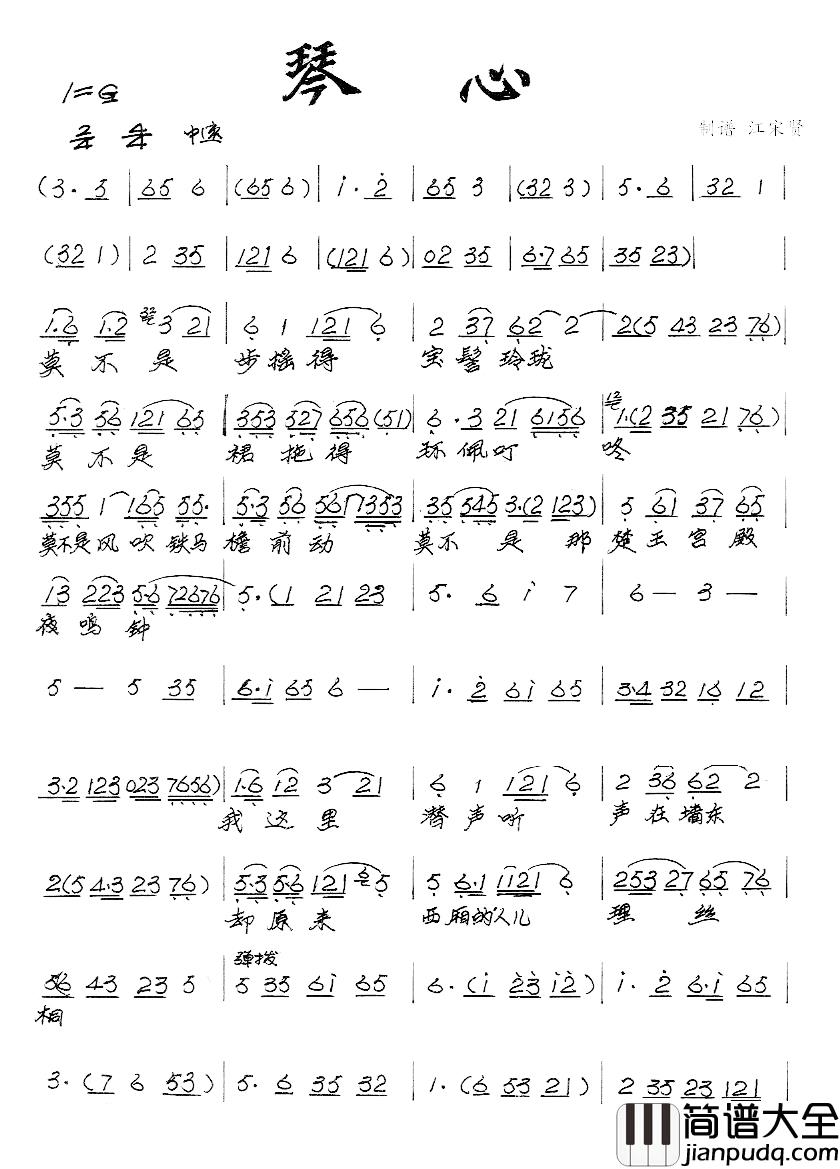 琴心
1=G
2/4 4/4 中速
制谱 江宋贤
(3·5 | 65 6 | (65 6) | i·2 | 65 3 | (32 3) | 5·6 | 32 1 |
(32 1) | 2 35 | 121 6 | (121 6) | 02 35 | 6·7 65 | 35 23) |
1·6 1·2 3 21 | 6 1 121 6 | 2 37 62 2 | 2(5 43 23 76) |
莫不是 步摇得 宝髻玲珑
5·3 56 121 65 | 353 527 656 (51) | 6·3 21 6156 | 1·(2 35 21 76) |
莫不是 裙拖得 环佩叮 咚
355 1 165 55· | 5·3 56 5617 353 | 35 545 3·(2 123) | 5 61 37 65 |
莫不是风吹铁马檐前动 莫不是那楚王宫殿
13 223 5·6 72676 | 5·(1 21 23 | 5·6 i 7 | 6 — 3 — |
夜鸣钟
5 — 5 35 | 6·i 65 6 — | i·2 6i 65 | 3·4 32 16 12 |
3·2 123 023 7656) | 1·6 12 3 21 | 6 1 121 6 | 2 36 62 2 |
我这里 潜声听 声在墙东
2(5 4·3 23 76) | 5·3 5·6 121 6 5 | 5 6·1 1121 6 | 253 27 65 76 |
却原来 西厢的人儿 理丝
弹拨
56 43 23 5 | 5 35 6i 65 | 6·(i 23 i2) | i·2 6·i 65 |
桐
3·(7 6 53) | 5·6 35 32 | 1·(6 53 21) | 2 35 23 121 |
简谱大全
jianpudq.com